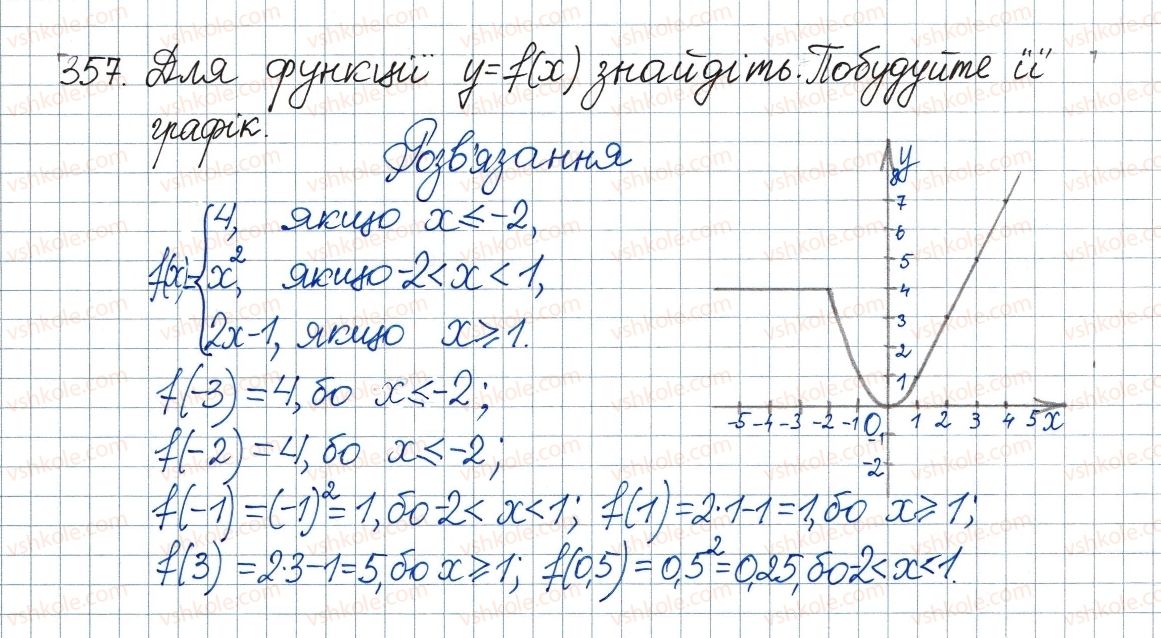 357. Для функції y=f(x) знайдіть. Побудуйте її
графік.
Розв'язання
f(x)= { 4, якщо x ≤ -2,
x², якщо -2 < x < 1,
2x-1, якщо x ≥ 1.
f(-3) = 4, бо x ≤ -2;
f(-2) = 4, бо x ≤ -2;
f(-1) = (-1)² = 1, бо -2 < x < 1; f(1) = 2·1-1 = 1, бо x ≥ 1;
f(3) = 2·3-1 = 5, бо x ≥ 1; f(0,5) = 0,5² = 0,25, бо -2 < x < 1.
y
8
7
6
5
4
3
2
1
-5 -4 -3 -2 -1 0 1 2 3 4 5 x
-1
-2
vshkole.com